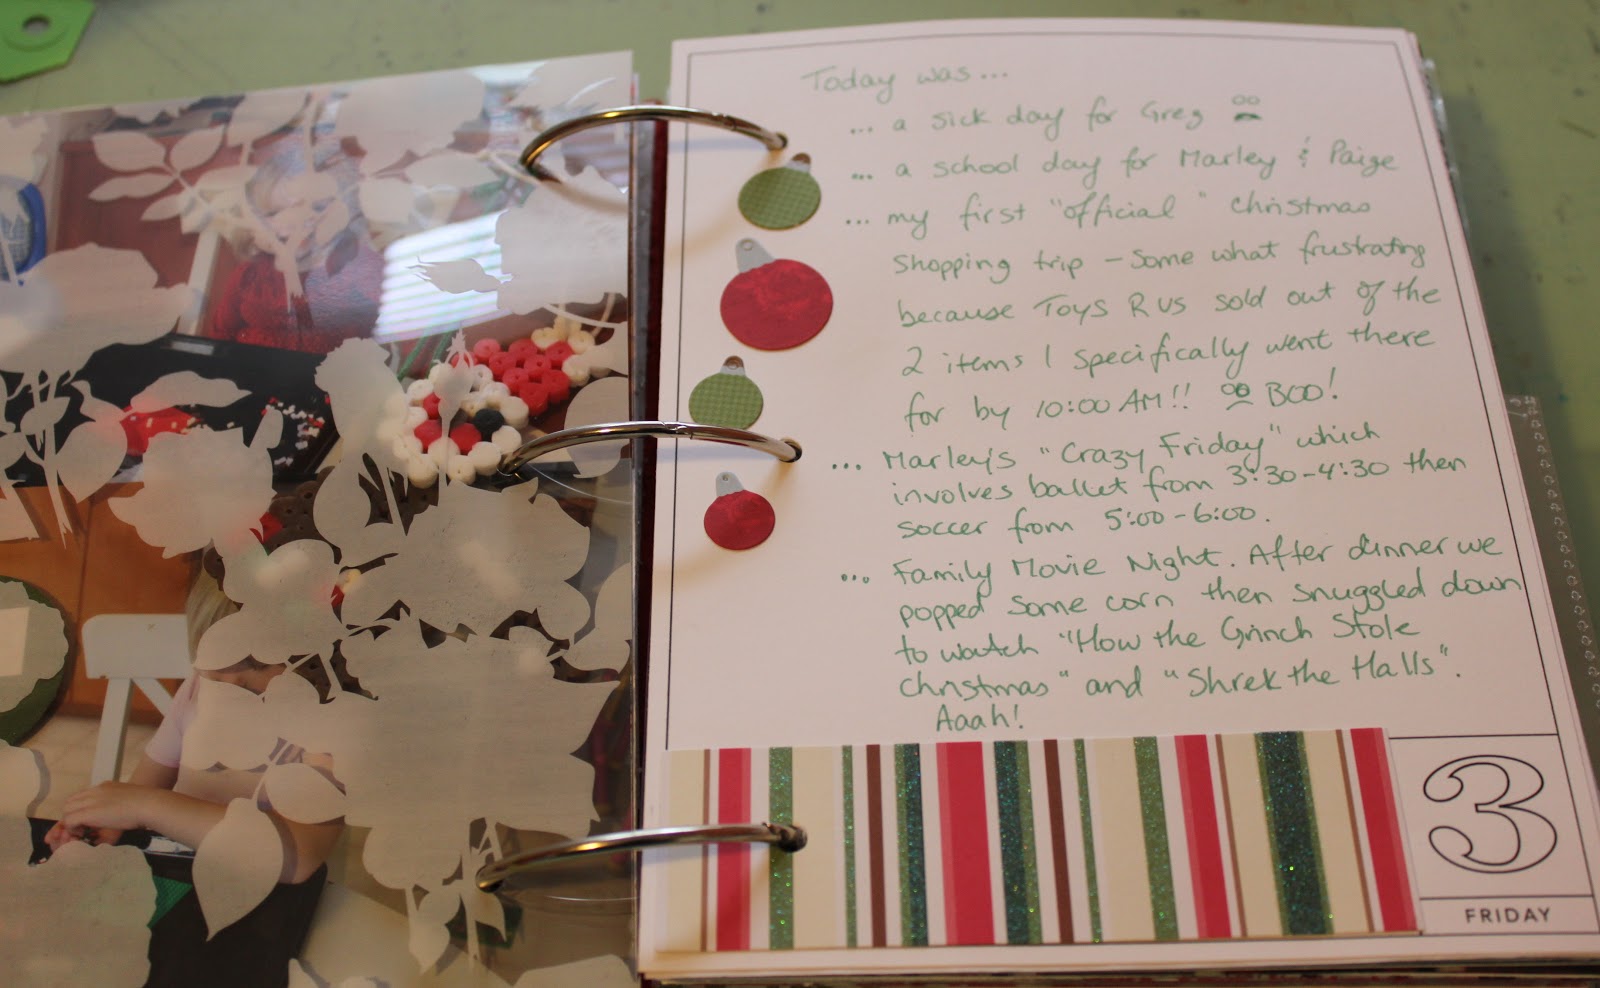 Today was...
... a sick day for Greg
... a school day for Marley & Paige
... my first "official" Christmas
shopping trip - some what frustrating
because Toys R Us sold out of the
2 items I specifically went there
for by 10:00 AM!! BOO!
... Marley's "Crazy Friday" which
involves ballet from 3:30-4:30 then
soccer from 5:00-6:00.
... Family Movie Night. After dinner we
popped some corn then snuggled down
to watch "How the Grinch Stole
Christmas" and "Shrek the Halls".
Aaah!
3
FRIDAY